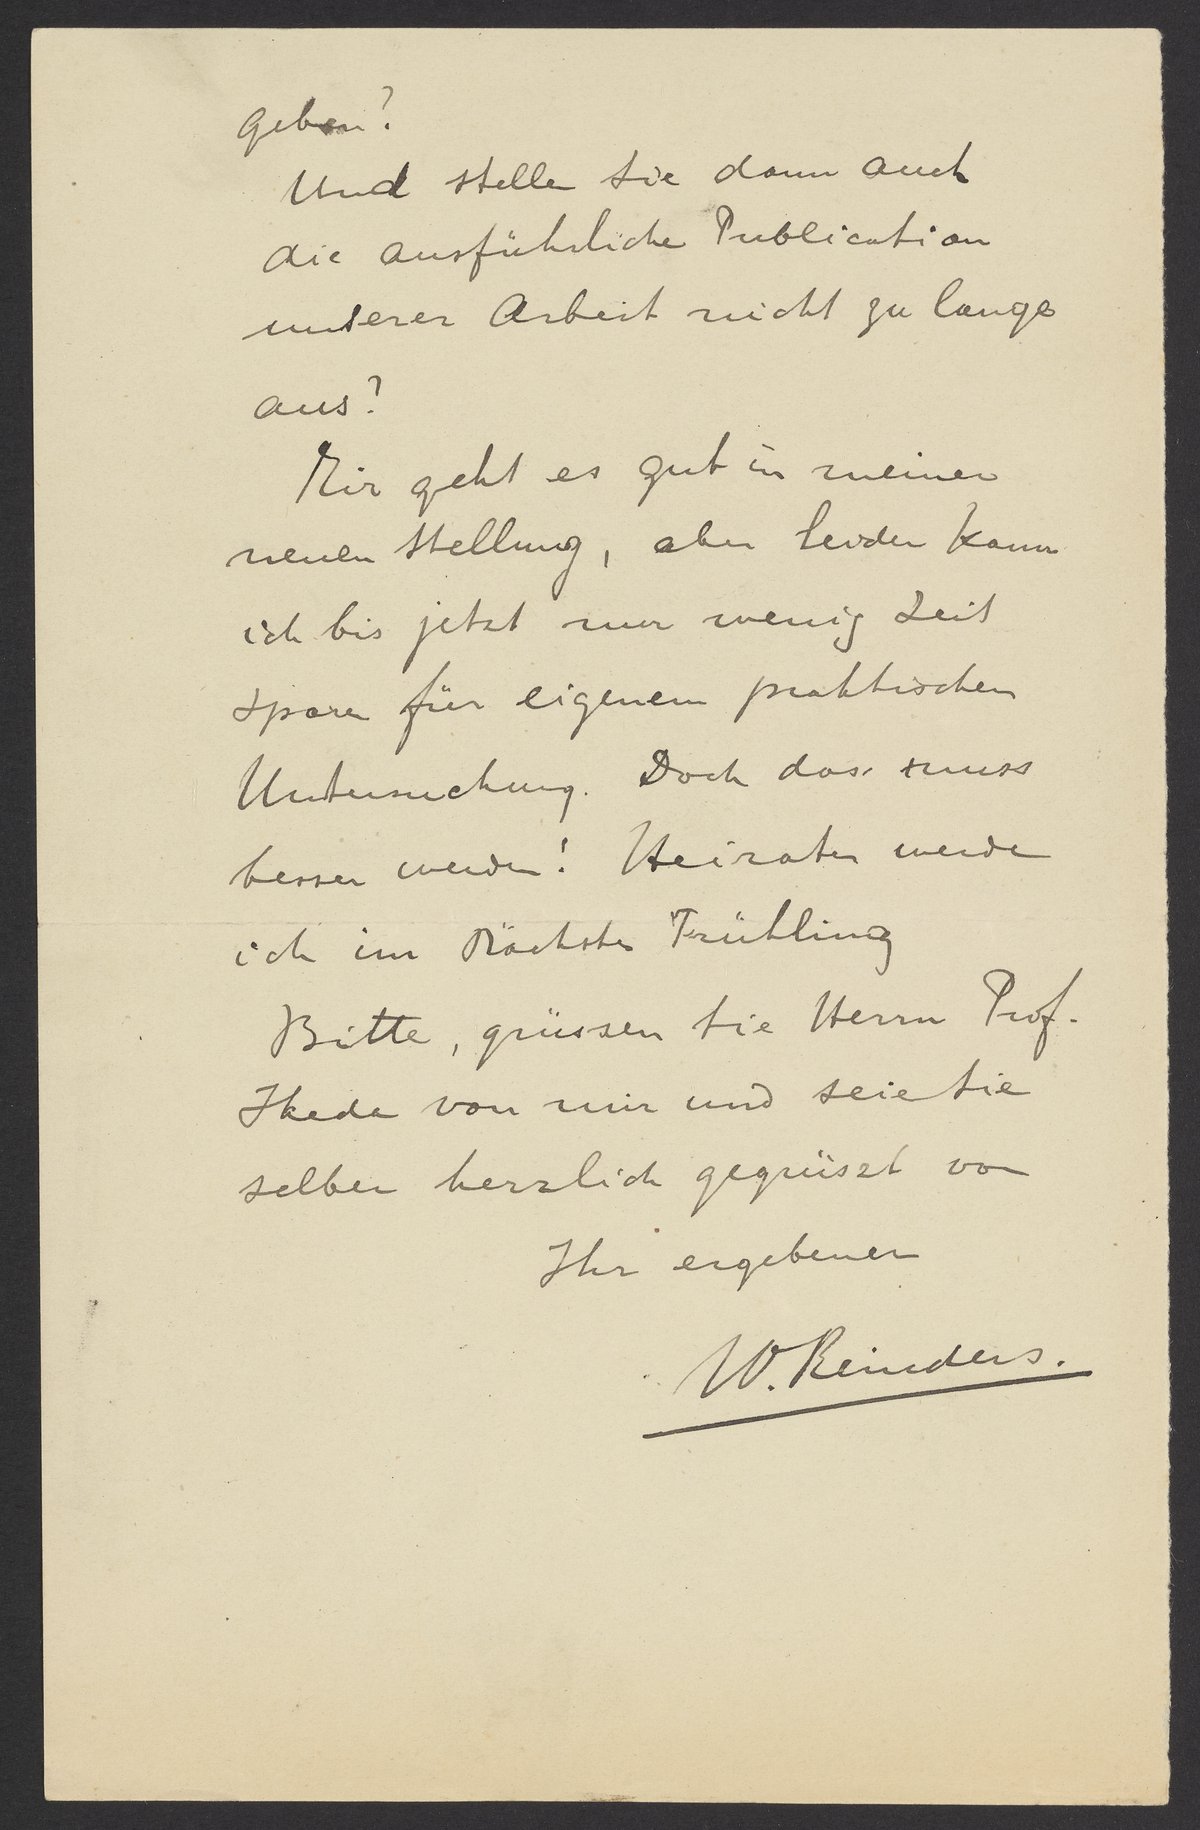 geben?
Und stellen Sie dann auch
die ausführliche Publication
unserer Arbeit nicht zu lange
aus?
Mir geht es gut in meiner
neuen Stellung, aber leider kann
ich bis jetzt nur wenig Zeit
sparen für eigenen praktischen
Untersuchung. Doch das muss
besser werden! Heiraten werde
ich im Nächsten Frühling
Bitte, grüssen Sie Herrn Prof.
Ikeda von mir und seie Sie
selber herzlich gegrüszt von
Ihr ergebener
W. Reinders.